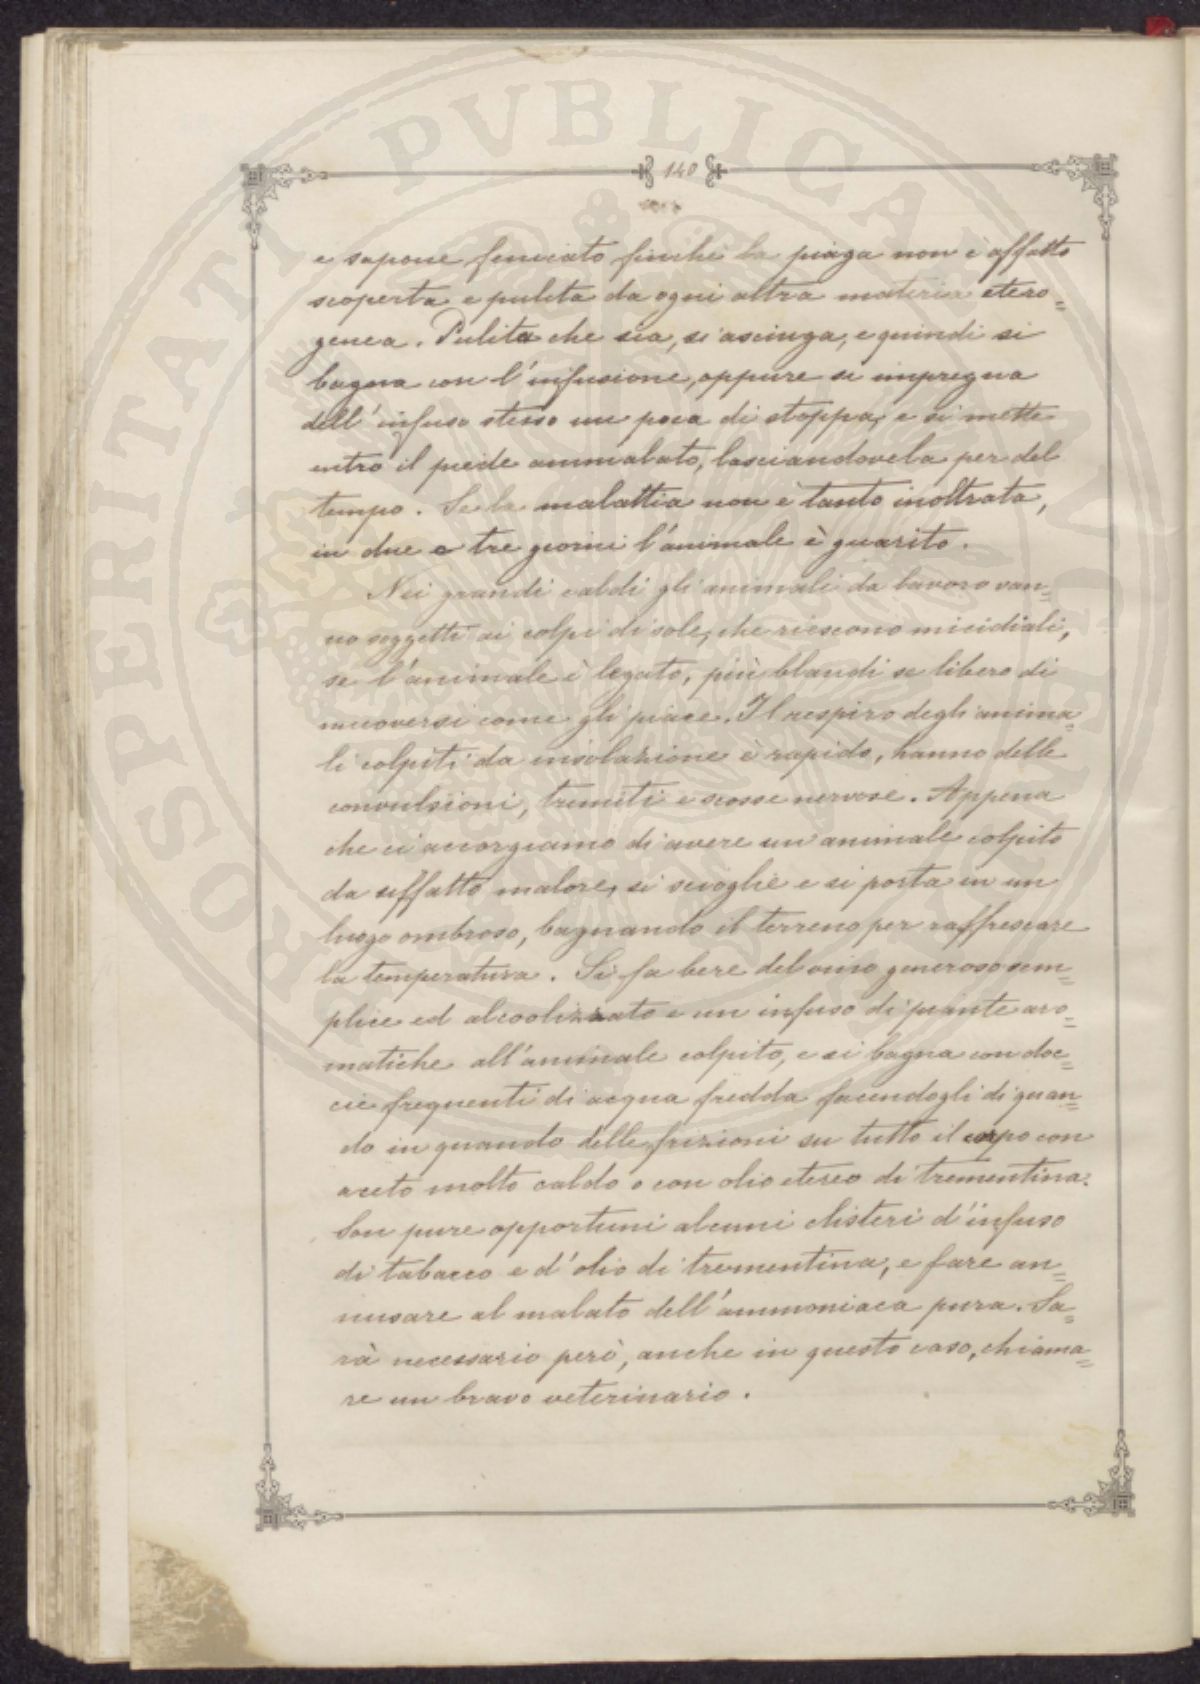 PROSPERITATI PVBLICAE AVGENDAE
140
e sapone fenicato finchè la piaga non è affatto
scoperta e pulita da ogni altra materia etero=
genea. Pulita che sia, si asciuga, e quindi si
bagna con l'infusione, oppure si impregna
dell'infuso stesso un poca di stoppa, e si mette
entro il piede ammalato, lasciandovela per del
tempo. Se la malattia non è tanto inoltrata,
in due o tre giorni l'animale è guarito.
Nei grandi caldi gli animali da lavoro van=
no soggetti ai colpi di sole, che riescono micidiali,
se l'animale è legato, più blandi se libero di
muoversi come gli piace. Il respiro degli anima=
li colpiti da insolazione è rapido, hanno delle
convulsioni, tremiti e scosse nervose. Appena
che ci accorgiamo di avere un animale colpito
da siffatto malore, si scioglie e si porta in un
luogo ombroso, bagnando il terreno per raffrescare
la temperatura. Si fa bere del vino generoso sem=
plice ed alcoolizzato e un infuso di piante aro=
matiche all'animale colpito, e si bagna con doc=
cie frequenti di acqua fredda facendogli di quan=
do in quando delle frizioni su tutto il corpo con
aceto molto caldo o con olio etereo di trementina.
Son pure opportuni alcuni clisteri d'infuso
di tabacco e d'olio di trementina, e fare an=
nusare al malato dell'ammoniaca pura. Sa=
rà necessario però, anche in questo caso, chiama=
re un bravo veterinario.